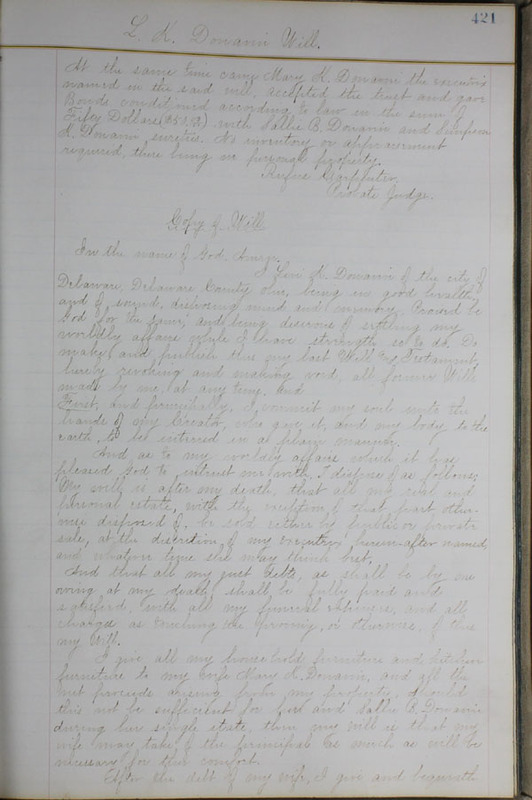 421
L. K. Donavin Will.
At the same time came Mary K. Donavin the executrix
named in the said will, accepted the trust and gave
Bonds conditioned according to law in the sum of
Fifty Dollars ($50.00) with Sallie B. Donavin and Simpson
K. Donavin sureties. No inventory or appraisement
required, there being no personal property.
Rufus Carpenter,
Probate Judge.
Copy of Will.
In the name of God Amen.
I, K. Donavin of the city of
Delaware, Delaware County Ohio, being in good health,
and of sound, disposing mind and memory, be
God for the same, and being desirous of settling my
worldly affairs while I have strength so to do. Do
make and publish this my last Will and Testament,
hereby revoking and making void, all former Wills
made by me, at any time. And
First, and principally, I commit my soul into the
hands of my Creator, who gave it, and my body to the
earth, to be interred in a plain manner.
And as to my worldly affairs which it has
pleased God to entrust me with, I dispose of as follows:
My will is after my death, that all my real and
personal estate, with the exception of that part other-
wise disposed of, be sold either by public or private
sale, at the discretion of my executrix, herein-after named,
and whatever time she may think best.
And that all my just debts, as shall be by me
owing at my death, shall be fully paid and
satisfied, with all my funeral expenses, and all
charges as touching the proving, or otherwise, of this
my Will.
I give all my household furniture and kitchen
furniture to my wife Mary K. Donavin, and all the
net proceeds arising from my property, should
this not be sufficient for her and Sallie B. Donavin
during her single state, then my will is that my
wife may take of the principal as much as will be
necessary for their comfort.
After the debt of my wife, I give and bequeath